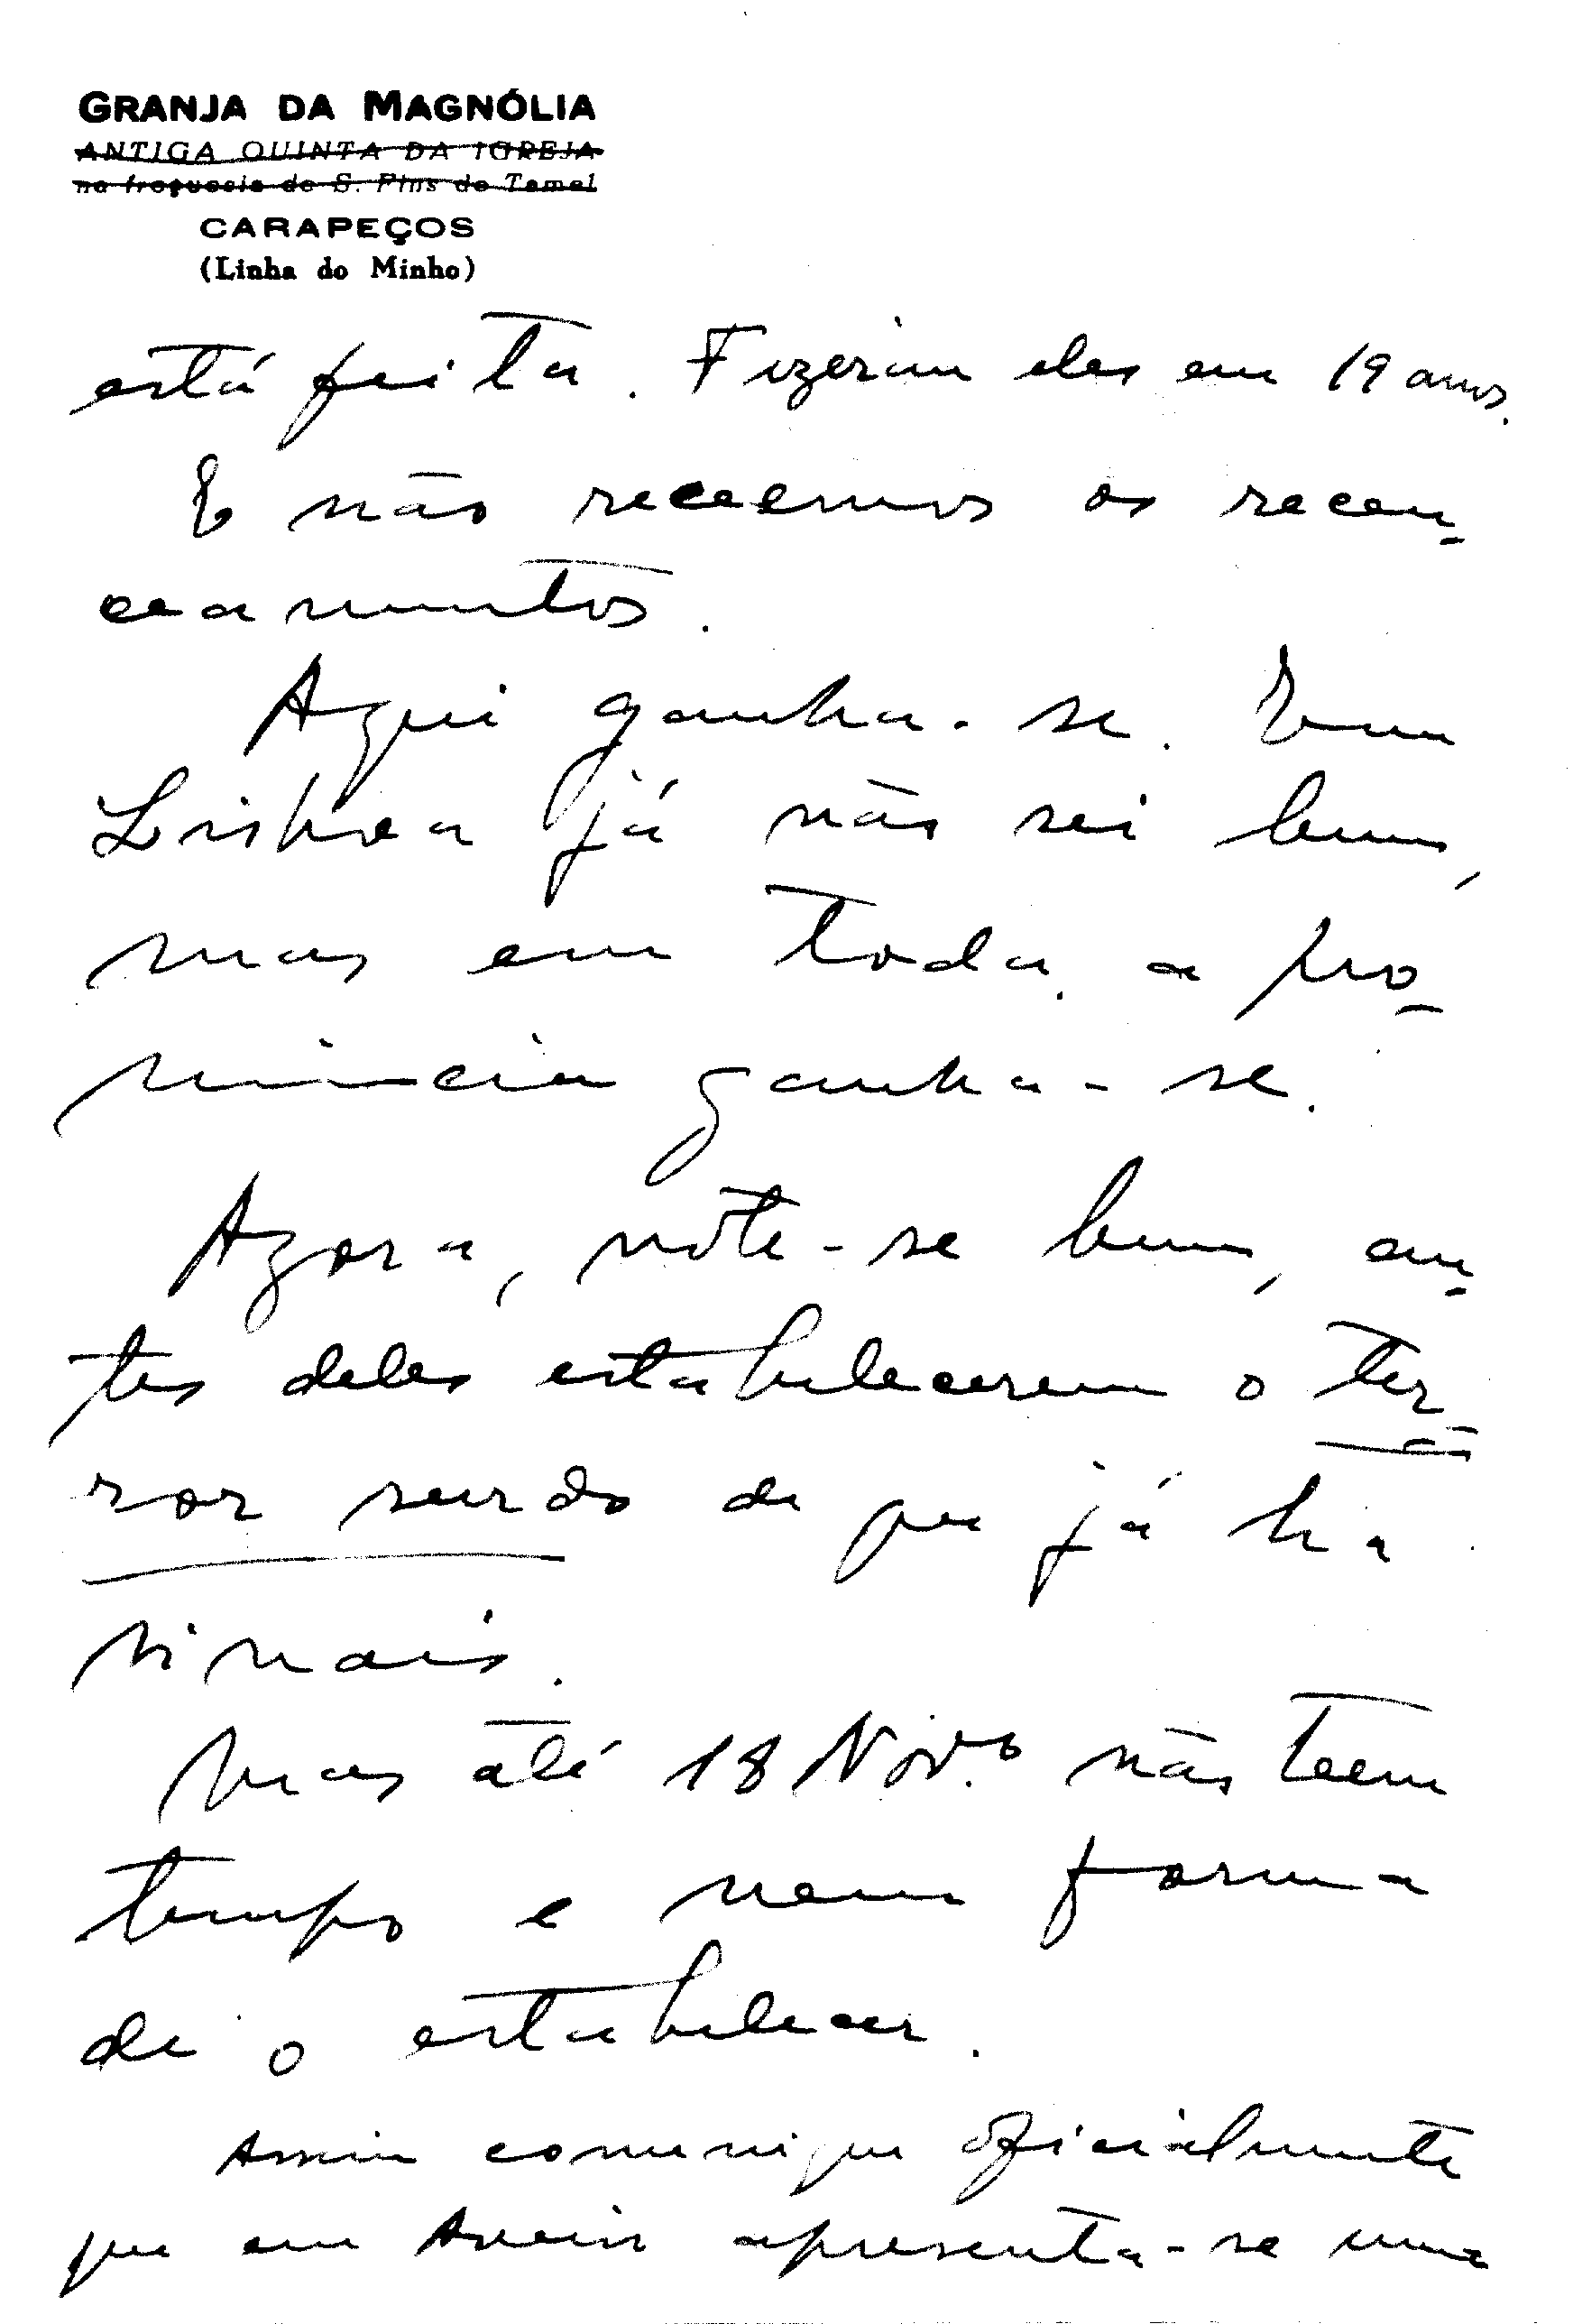 GRANJA DA MAGNÓLIA
ANTIGA QUINTA DA IGREJA
na freguesia de S. Fins do Tamel
CARAPEÇOS
(Linha do Minho)
está feita. Fizeram eles em 19 anos.
E não receemos os recen-
ceamentos.
Aqui ganha-se. Em
Lisboa já não sei bem,
mas em toda a pro-
vincia ganha-se.
Agora, note-se bem, an-
tes deles estabelecerem o ter-
ror surdo de que já ha
sinais.
Mas até 18 Nov.o não teem
tempo e nem forma
de o estabelecer.
Assim comunique oficialmente
que em Aveiro apresenta-se uma